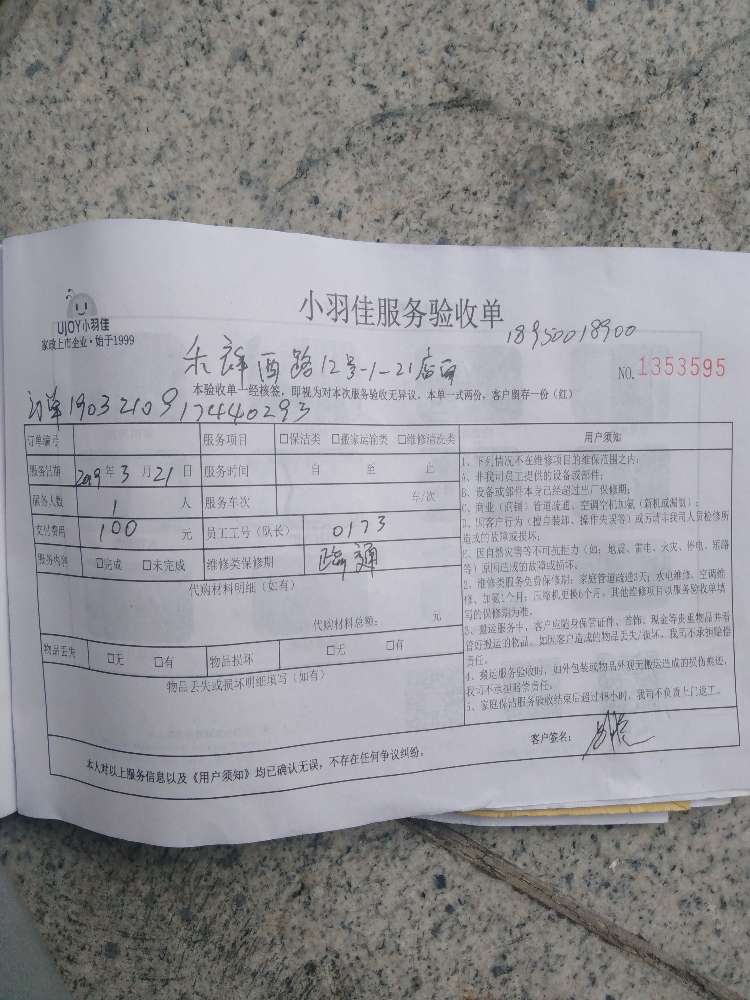 UJOY小羽佳
家政上市企业·始于1999
小羽佳服务验收单
18950018900
禾祥西路12号-1-21店面
NO.1353595
本验收单一经核签，即视为对本次服务验收无异议。本单一式两份，客户留存一份（红）
订单19032109174440293
订单编号 服务项目 □保洁类 □搬家运输类 □维修清洗类 用户须知
服务日期 2019年3月21日 服务时间 自 至 止
服务人数 1 人 服务车次 车/次
支付费用 100 元 员工工号（队长） 0173
服务内容 □完成 □未完成 维修类保修期 临通
代购材料明细（如有）
代购材料总额： 元
物品丢失 □无 □有 物品损坏 □无 □有
物品丢失或损坏明细填写（如有）
1、下列情况不在维修项目的维保范围之内：
A、非我司员工提供的设备或部件；
B、设备或部件本身已经超过出厂保修期；
C、商业（店铺）管道疏通、空调空机加氨（新机或漏氨）；
D、因客户行为（擅自装卸、操作失误等）或方请非我司人员检修所
造成的故障或损坏；
E、因自然灾害等不可抗拒力（如：地震、雷电、火灾、停电、短路
等）原因造成的故障或损坏。
2、维修类服务免费保修期：家庭管道疏通3天；水电维修、空调维
修、加氨1个月；压缩机更换6个月。其他维修项目以服务验收单填
写的保修期为准。
3、搬运服务中，客户应随身保管证件、首饰、现金等贵重物品并看
管好搬运的物品。如因客户造成的物品丢失/损坏，我司不承担赔偿
责任。
4、搬运服务验收时，如外包装或物品外观无搬运造成的损伤痕迹，
我司不承担赔偿责任。
5、家庭保洁服务验收结束后超过48小时，我司不负责上门返工。
客户签名：
本人对以上服务信息以及《用户须知》均已确认无误，不存在任何争议纠纷。